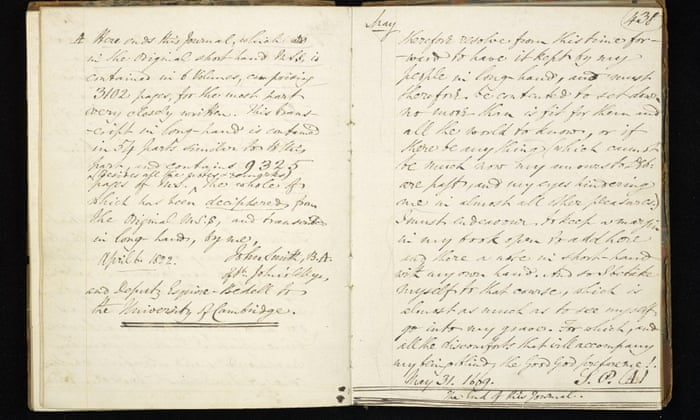 A Here ends this Journal, which is
in the Original short hand M.S.S. is
contained in 6 Volumes, comprising
3102 pages, for the most part
very closely written. This trans-
cript in long-hand is contained
in 54 parts similar to this
part, and contains 9325
(besides all the notes & remarks)
pages of M.S. the whole of
which has been deciphered from
the Original M.S.S., and transcribed
in long hand, by me,
April 1822. John Smith, B.A.
of St. John's College,
and Deputy Esquire-Bedell to
the University of Cambridge.
May 438
therefore resolve from this time for-
ward to have it kept by my
people in long-hand, and must
therefore be contented to set down
no more than is fit for them and
all the world to know, or if
there be any thing (which cannot
be much now my amours to Deb:
are past, and my eyes hindering
me in almost all other pleasures)
I must endeavour to keep a margin
in my book open to add here
and there a note in short-hand
with my own hand. And so I betake
myself to that course, which is
almost as much as to see myself
go into my grave. For which, and
all the discomforts that will accompany
my being blind, the Good God prepare me!
May 31. 1669. S. P. (A)
The End of this Journal.